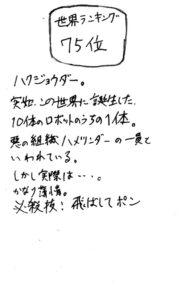 世界ランキング
75位
ハクジョウダー。
突如、この世界に誕生した
10体のロボットのうちの1体。
悪の組織ハメツンダーの一員と
いわれている。
しかし実際は・・・。
かなり薄情。
必殺技：飛ばしてポン